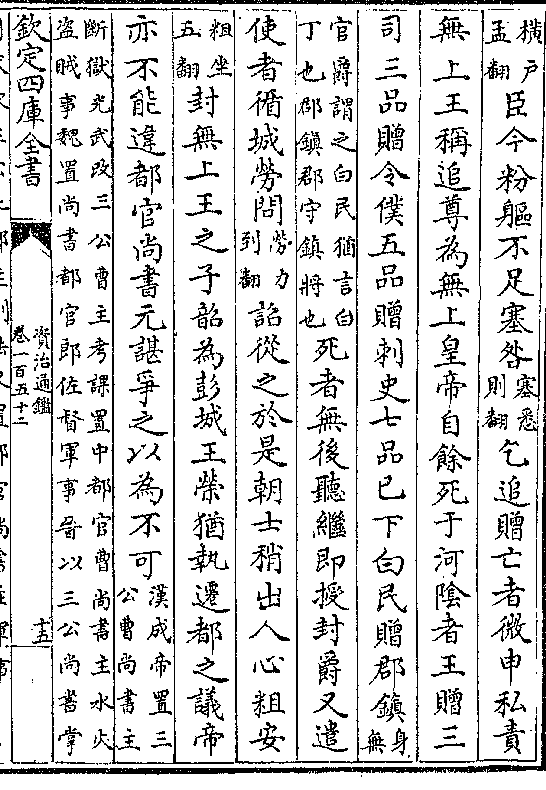 橫戶孟翻臣今粉軀不足塞咎塞悉則翻乞追贈亡者微申私責
無上王稱追尊為無上皇帝自餘死于河陰者王贈三
司三品贈令僕五品贈刺史七品已下白民贈郡鎮身無
官爵謂之白民猶言白丁也郡鎮郡守鎮將也死者無後聽繼即授封爵又遣
使者循城勞問勞力到翻詔從之於是朝士稍出人心粗安
粗坐五翻封無上王之子韶為彭城王榮猶執遷都之議帝
亦不能違都官尚書元諶爭之以為不可漢成帝置三公曹尚書主
斷獄光武改三公曹主考課置中都官曹尚書主水火
盜賊事魏置尚書都官郎佐督軍事晉以三公尚書掌
欽定四庫全書
資治通鑑
卷一百五十二
十五